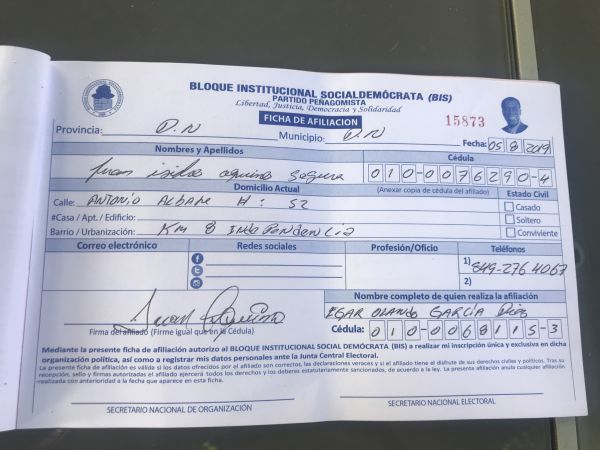 BLOQUE INSTITUCIONAL SOCIALDEMÓCRATA (BIS)
PARTIDO PEÑAGOMISTA
Libertad, Justicia, Democracia y Solidaridad
FICHA DE AFILIACION
15873
Provincia: D.N Municipio: D.N Fecha: 05 8 2019
Nombres y Apellidos Cédula
Juan isidro aquino segura 010-0076290-4
Domicilio Actual (Anexar copia de cédula del afiliado) Estado Civil
Calle: ANTONIO H: 52 Casado
#Casa / Apt. / Edificio: Soltero
Barrio / Urbanización: KM 8 Independencia Conviviente
Correo electrónico Redes sociales Profesión/Oficio Teléfonos
1) 849-276 4067
2)
Nombre completo de quien realiza la afiliación
EGAR ORLANDO GARCÍA
Firma del afiliado (Firme igual que en la Cédula) Cédula: 010-0068115-3
Mediante la presente ficha de afiliación autorizo al BLOQUE INSTITUCIONAL SOCIAL DEMÓCRATA (BIS) a realizar mi inscripción única y exclusiva en dicha
organización política, así como a registrar mis datos personales ante la Junta Central Electoral.
La presente ficha de afiliación es válida si los datos ofrecidos por el afiliado son correctos, las declaraciones veraces y si el afiliado tiene el disfrute de sus derechos civiles y políticos. Tras su
recepción, sello y firmas autorizadas el afiliado ejercerá todos los derechos y los deberes estatutariamente sancionados, de acuerdo a la ley. La presente afiliación anula cualquier afiliación
realizada con anterioridad a la fecha que aparece en esta ficha.
SECRETARIO NACIONAL DE ORGANIZACIÓN SECRETARIO NACIONAL ELECTORAL